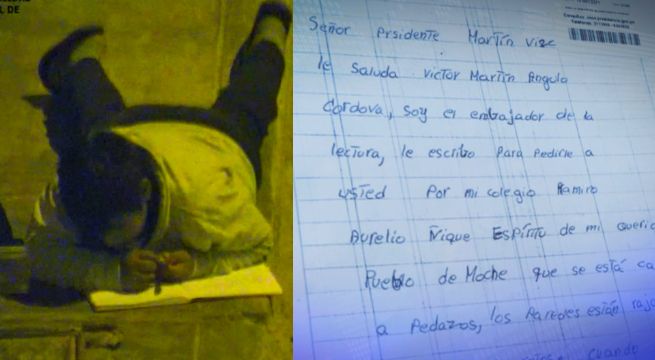 L DE
Señor Prsidente Martin vizc
le saluda victor Martin Angulo
Cordova, soy el embajador de la
lectura, le escribo Para Pedirle a
usted Por mi colegio Ramiro
Aurelio Ñique Espiritu de mi queric
Pueblo de Moche que se está ca
a Pedazos, los Paredes están raja
cuando